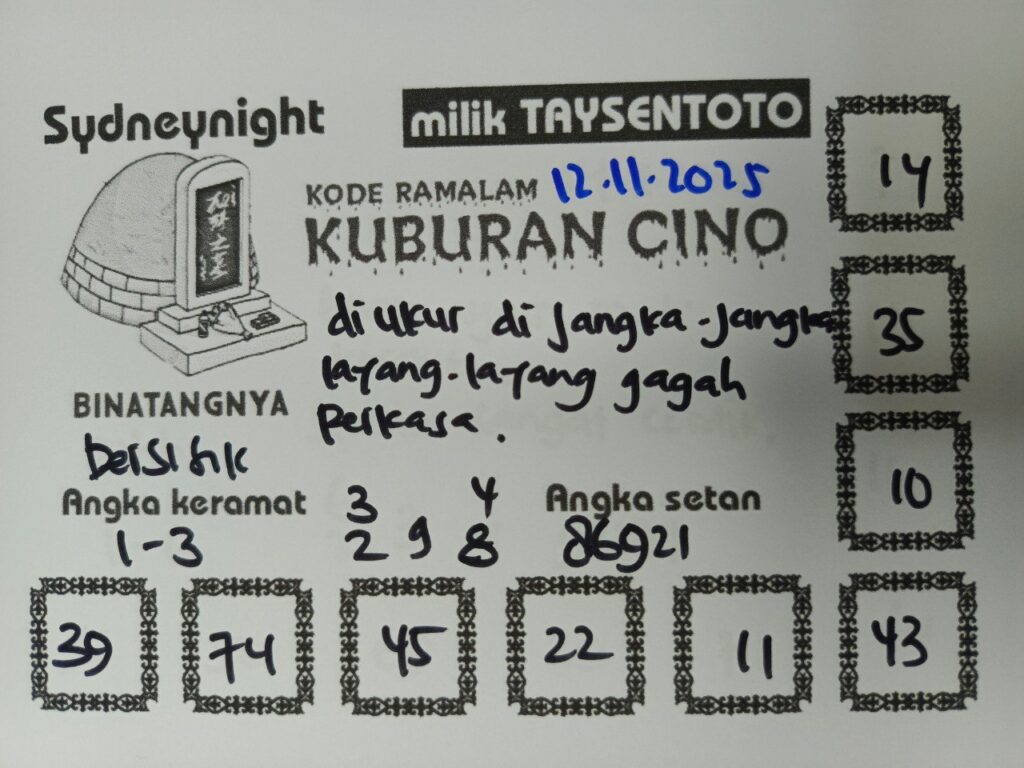 Sydneynight
milik TAYSENTOTO
KODE RAMALAM 12.11.2025
KUBURAN CINO
diukur di jangka-jangka
layang-layang gagah
perkasa.
BINATANGNYA
bersisik
Angka keramat
1-3
3 4
2 9 8
Angka setan
86921
14
35
10
39 74 45 22 11 43